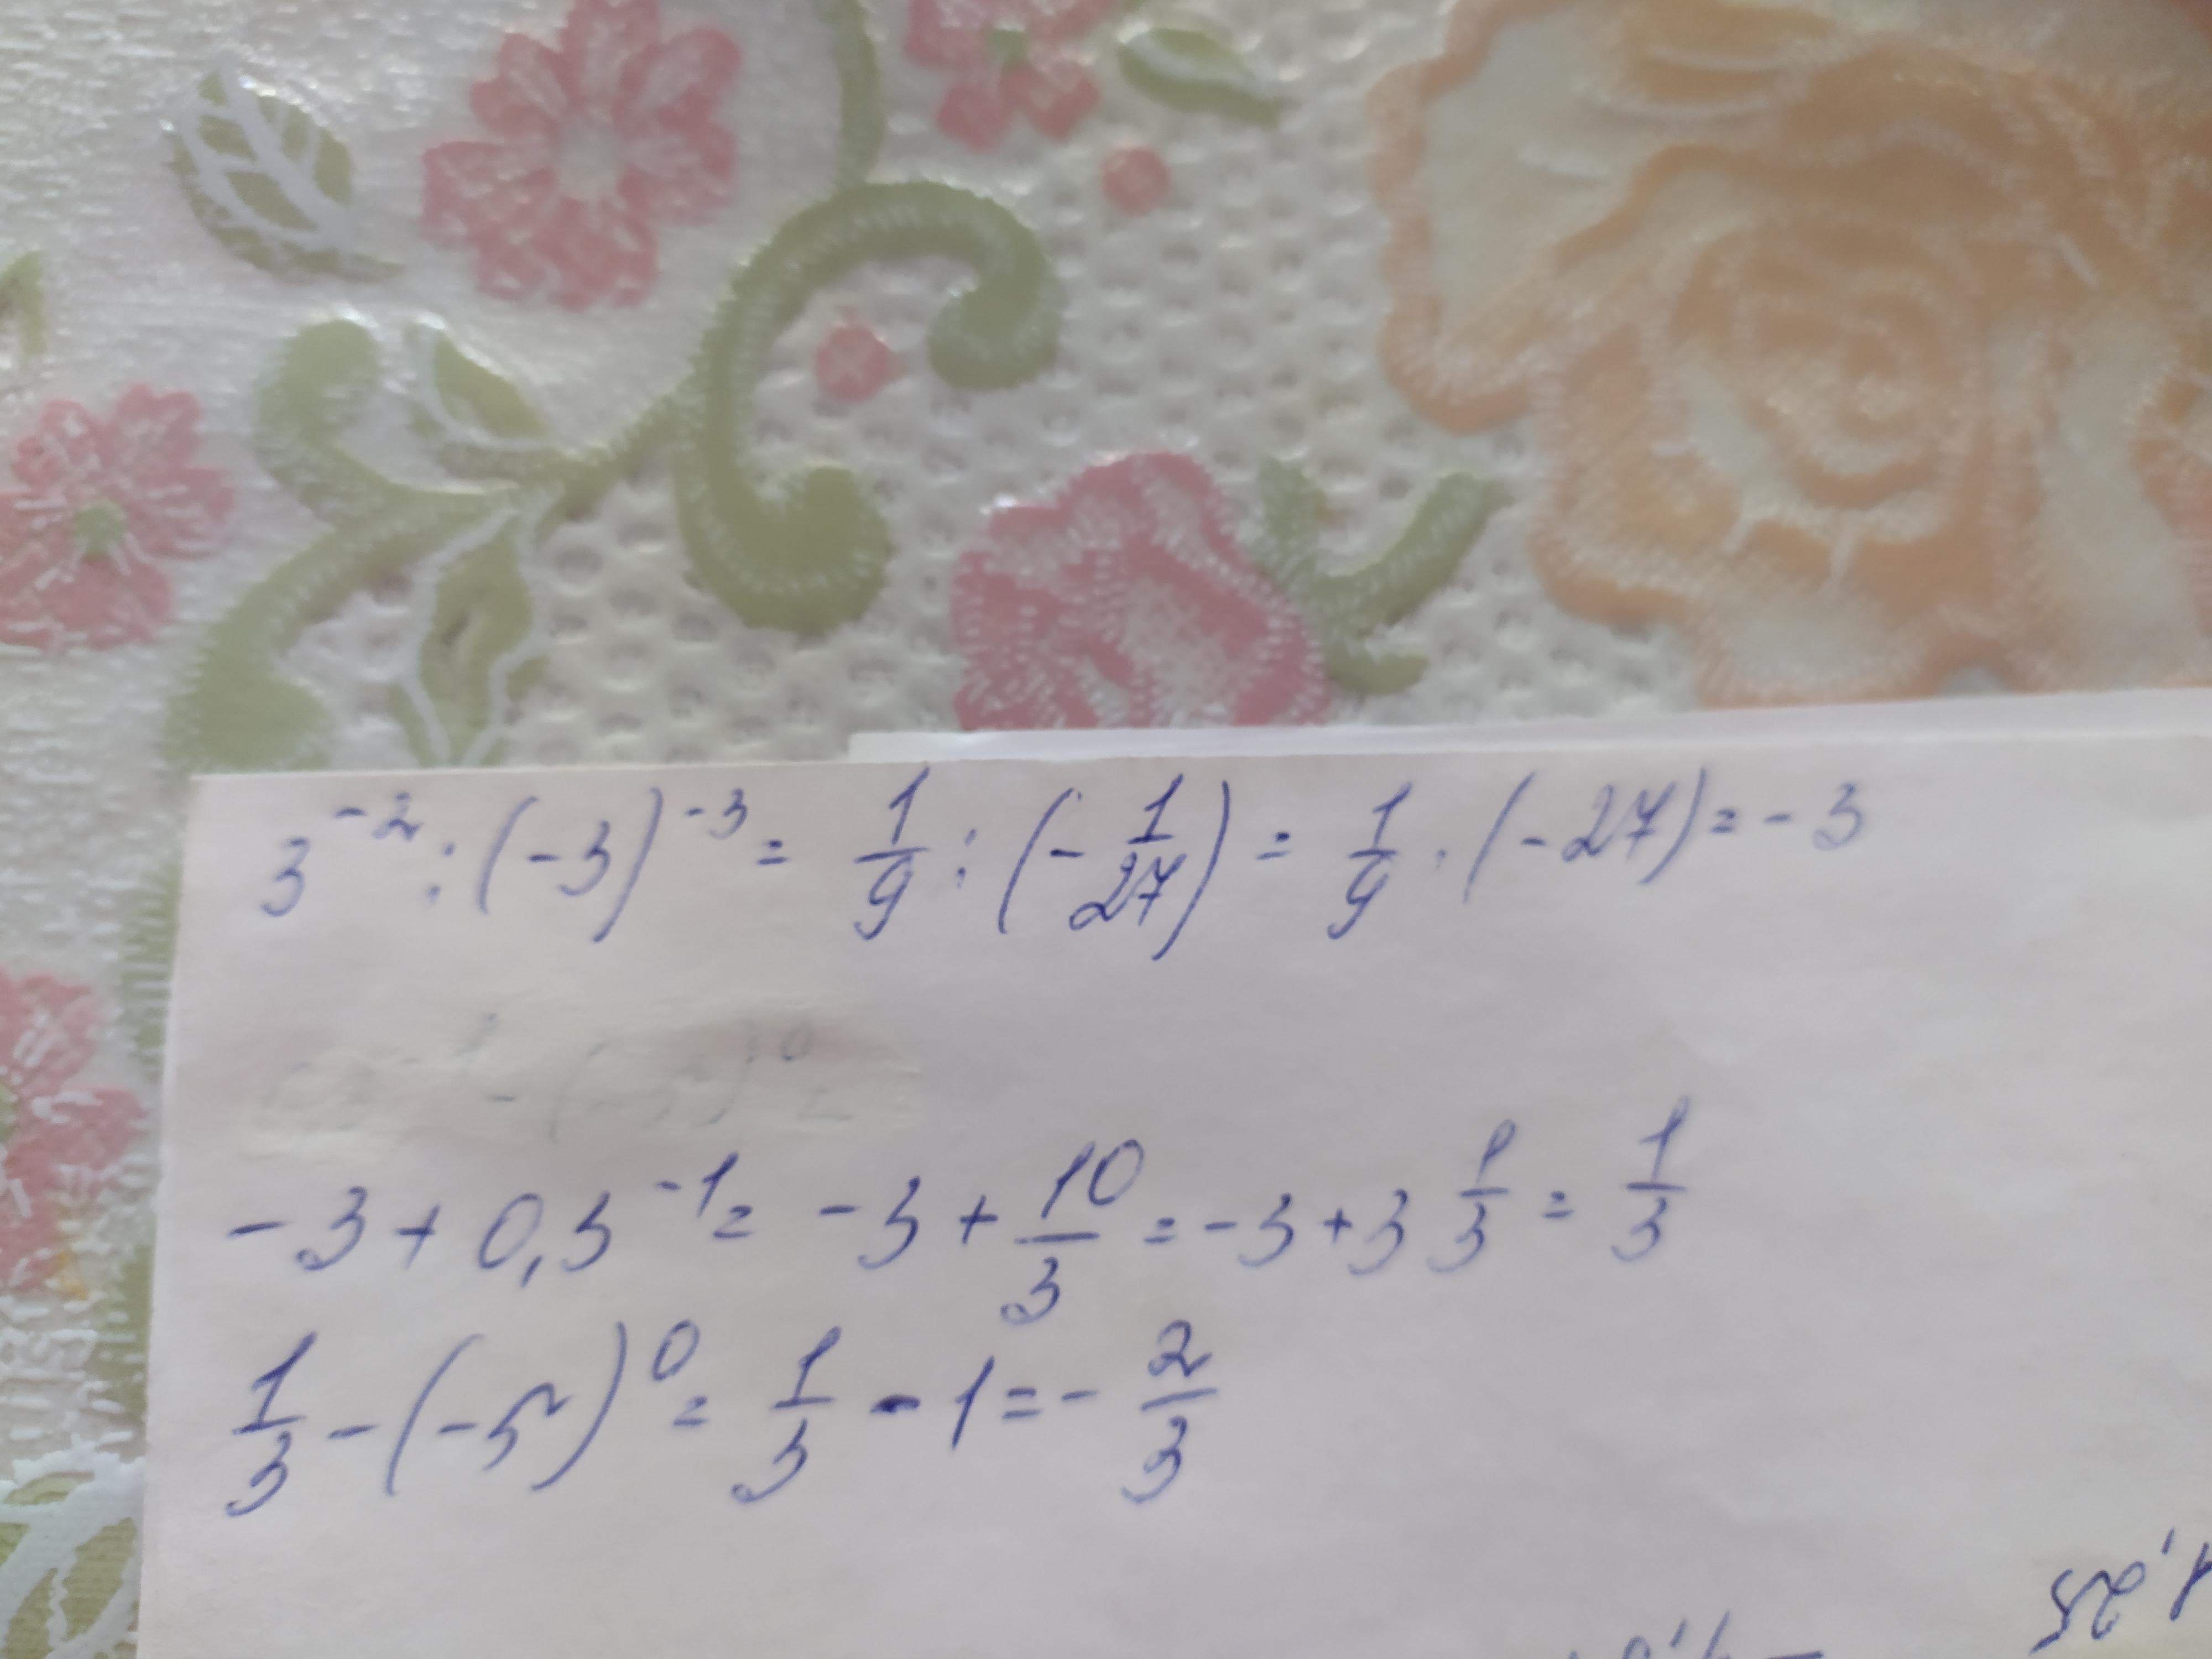 3⁻² : (-3)⁻³ = 1/9 : (-1/27) = 1/9 · (-27) = -3
-3 + 0,3⁻¹ = -3 + 10/3 = -3 + 3 1/3 = 1/3
1/3 - (-5)⁰ = 1/3 - 1 = - 2/3
1,25